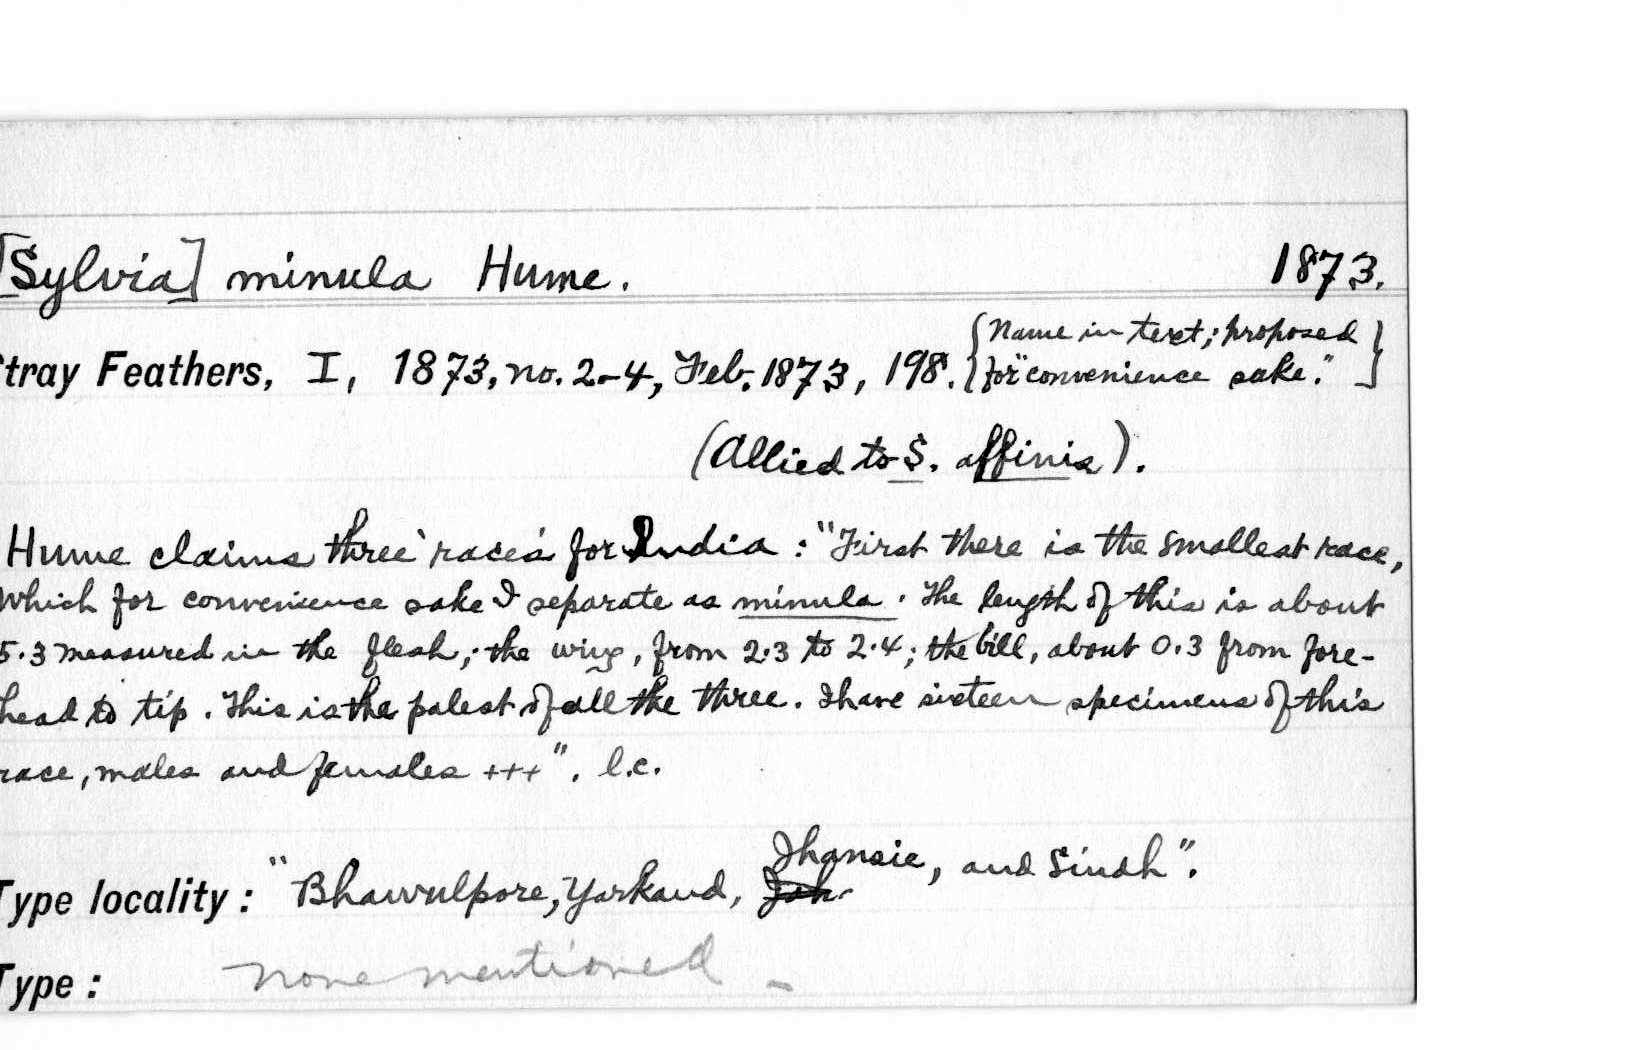 [Sylvia] minula Hume. 1873.
Stray Feathers, I, 1873, no. 2-4, Feb. 1873, 198. {Name in text; proposed
for "convenience sake."}
(Allied to S. affinis).
Hume claims three 'races' for India : "First there is the smallest race,
which for convenience sake I separate as minula. The length of this is about
5.3 measured in the flesh; the wing, from 2.3 to 2.4; the bill, about 0.3 from fore-
head to tip. This is the palest of all the three. I have sixteen specimens of this
race, males and females +++". l.c.
Type locality : "Bhawulpore, Yarkand, Jhansie, and Sindh".
Type : None mentioned –